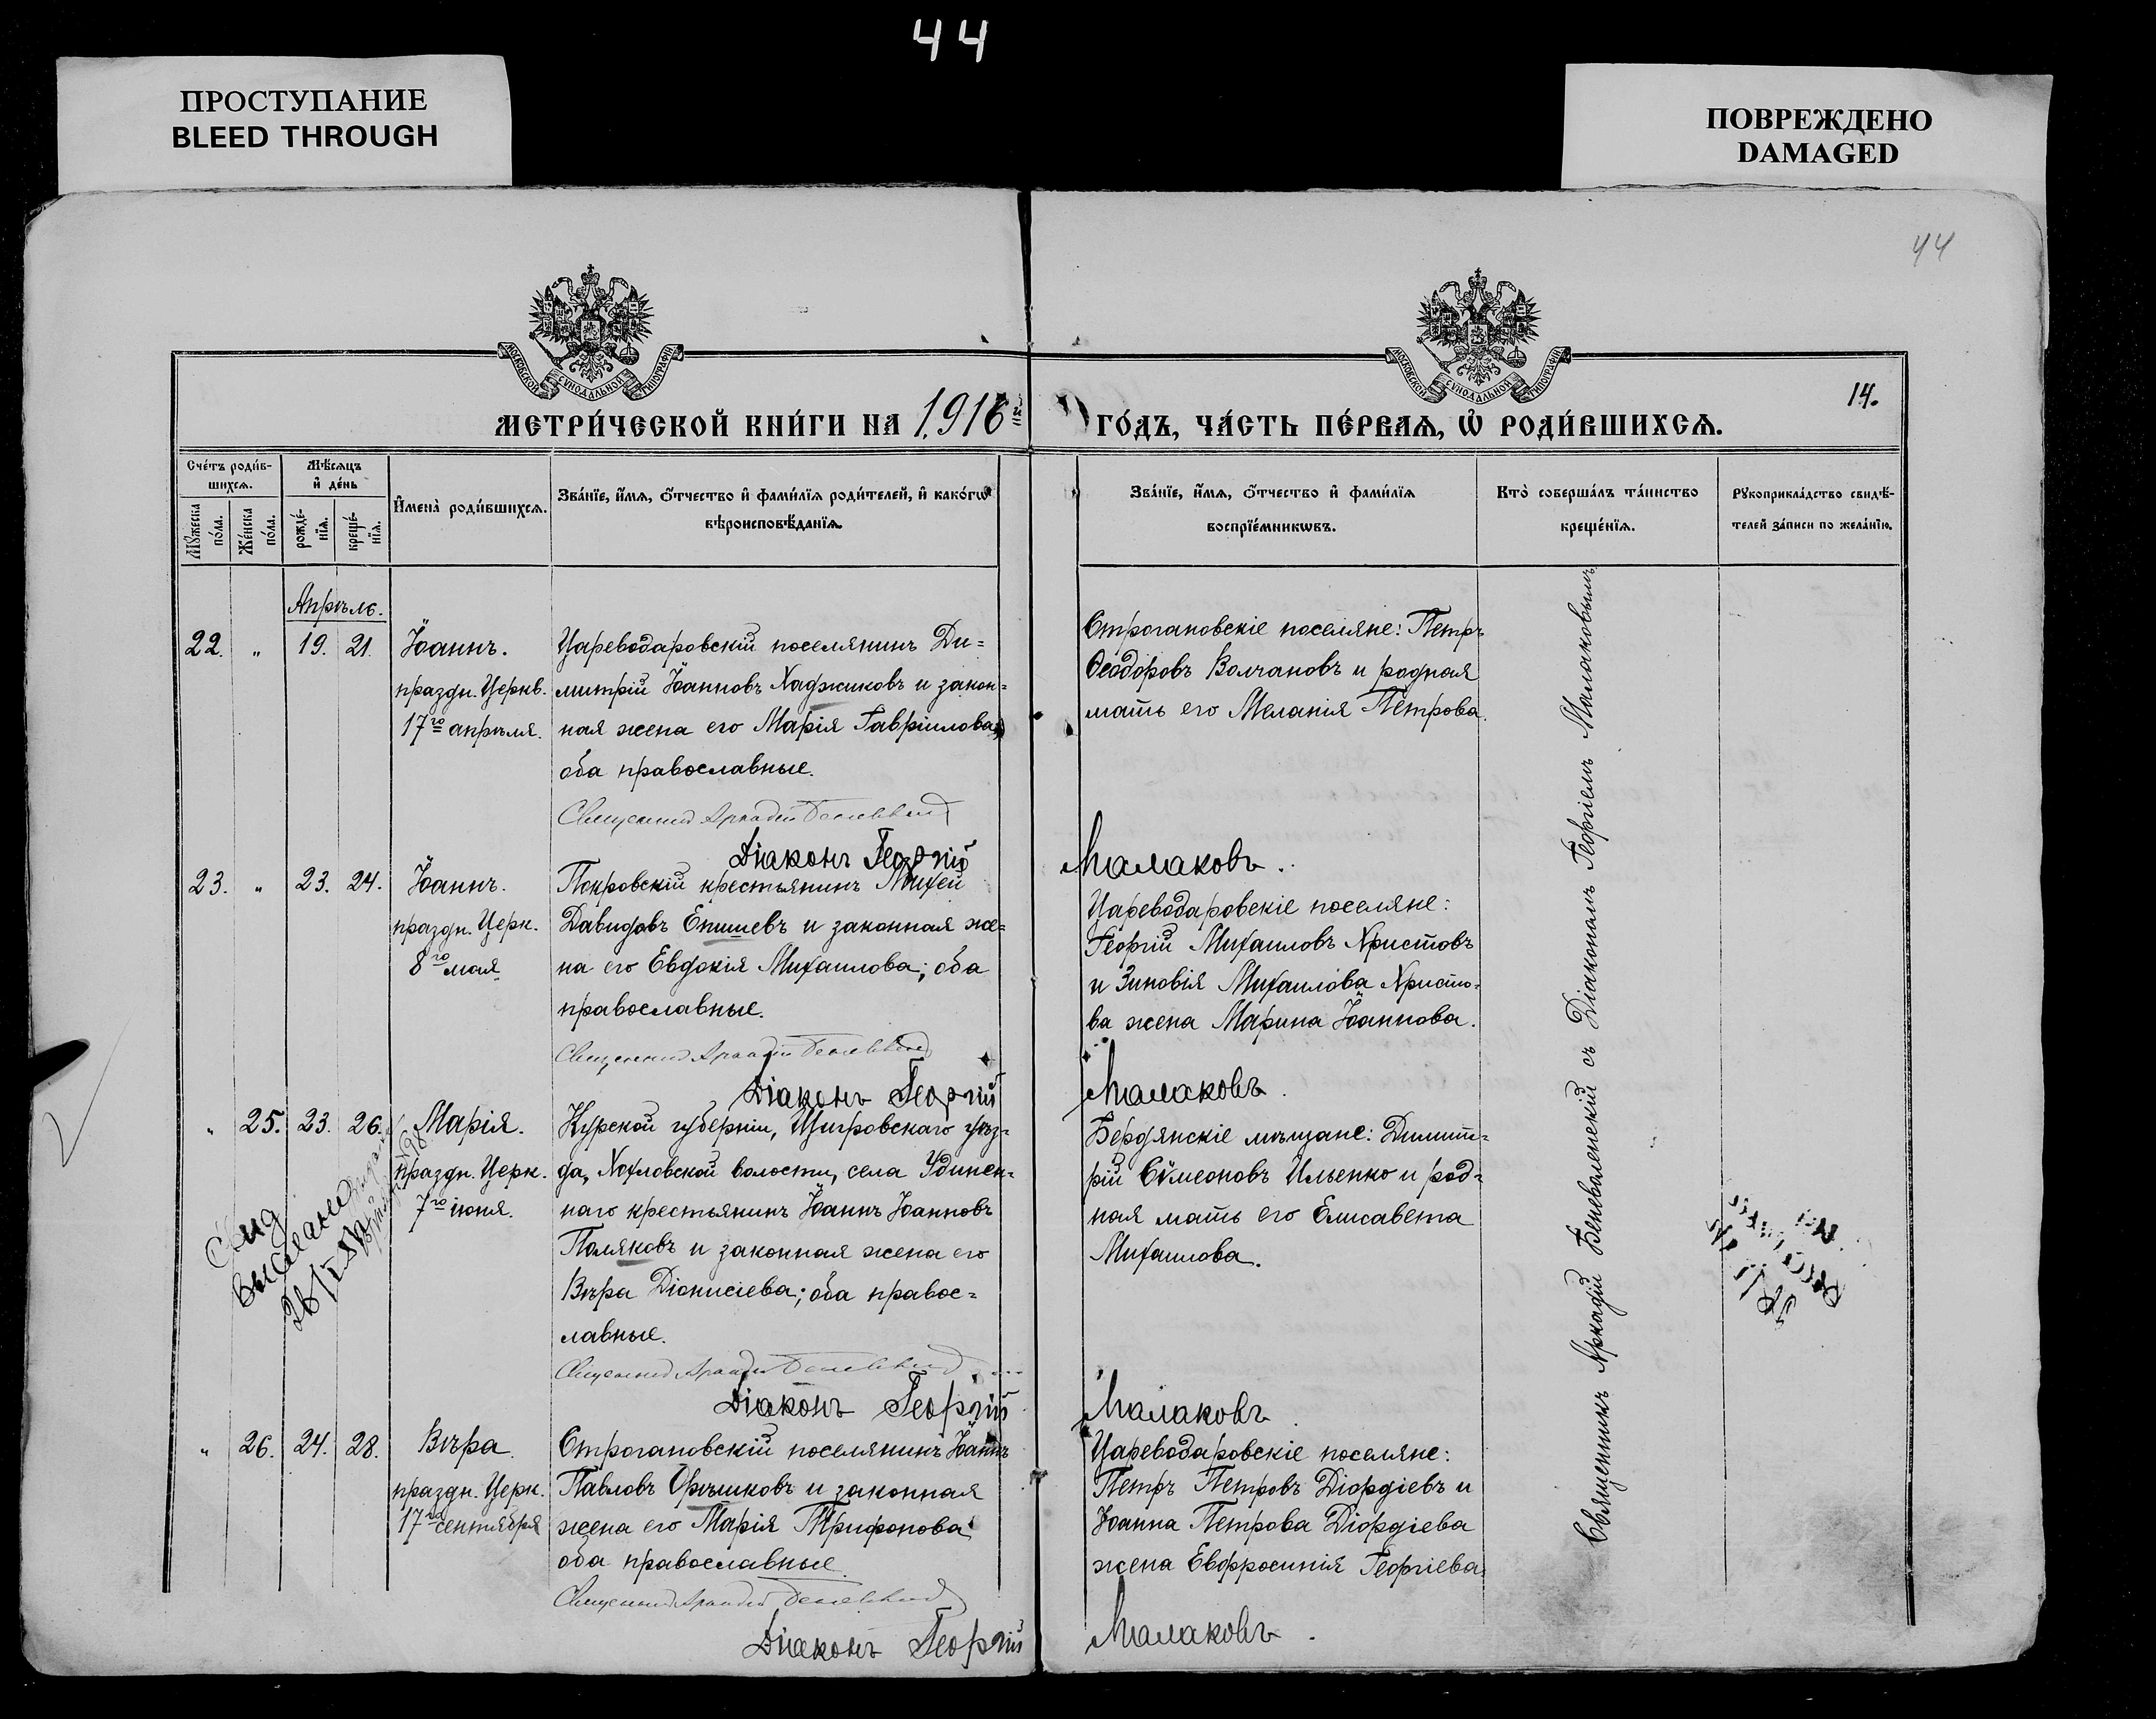 44
ПРОСТУПАНИЕ
BLEED THROUGH
ПОВРЕЖДЕНО
DAMAGED
44
МОСКОВСКОЙ СУНОДАЛЬНОЙ ТИПОГРАФІИ
МОСКОВСКОЙ СУНОДАЛЬНОЙ ТИПОГРАФІИ
14.
МЕТРИ́ЧЕСКОЙ КНИ́ГИ НА 1916й
ГО́ДЪ, ЧА́СТЬ ПЕ́РВАѦ, Ѡ҆ РОДИ́ВШИХСѦ.
Сче́тъ роди́в-
шихсѧ.
Мѣ́сѧцъ
и҆ де́нь
Мꙋ́жеска
по́ла.
Же́нска
по́ла.
рожде́-
нїѧ.
креще́-
нїѧ.
И҆мена̀ роди́вшихсѧ.
Зва́нїе, и҆́мѧ, ѻ҆́тчество и҆ фами́лїѧ роди́телей, и҆ како́гѡ
вѣроисповѣ́данїѧ.
Зва́нїе, и҆́мѧ, ѻ҆́тчество и҆ фами́лїѧ
воспрїе́мникѡвъ.
Кто̀ соверша́лъ та́инство
креще́нїѧ.
Рꙋкоприкла́дство свидѣ́-
телей за́писи по жела́нїю.
Апрѣль.
22. " 19. 21. Іоаннъ.
праздн. Церкв.
17го апрѣля.
Цареводаровскій поселянинъ Ди=
митрій Іоанновъ Хаджиковъ и закон=
ная жена его Марія Гавріилова,
оба православные.
Священникъ Аркадій
Діаконъ Георгій Малаковъ.
Строгановскіе поселяне: Петръ
Ѳеодоровъ Волчановъ и родная
мать его Меланія Петрова.
23. " 23. 24. Іоаннъ.
праздн. Церк.
8го мая.
Покровскій крестьянинъ Михей
Давидовъ Епишевъ и законная же=
на его Евдокія Михаилова; оба
православные.
Священникъ Аркадій
Діаконъ Георгій Малаковъ.
Цареводаровскіе поселяне:
Георгій Михаиловъ Христовъ
и Зиновія Михаилова Христо=
ва жена Марина Іоаннова.
" 25. 23. 26. Марія.
праздн. Церк.
7го іюня.
Курской губерніи, Щигровскаго уѣз=
да, Хохловской волости, села Удинен=
наго крестьянинъ Іоаннъ Іоанновъ
Поляковъ и законная жена его
Вѣра Діонисіева; оба правос=
лавные.
Священникъ Аркадій
Діаконъ Георгій Малаковъ
Бердянскіе мѣщане: Димит=
рій Сѵмеоновъ Ильенко и род=
ная мать его Елисавета
Михаилова.
" 26. 24. 28. Вѣра.
праздн. Церк.
17го сентября
Строгановскій поселянинъ Іоаннъ
Павловъ Орѣшковъ и законная
жена его Марія Трифонова
оба православные.
Священникъ Аркадій
Діаконъ Георгій Малаковъ.
Цареводаровскіе поселяне:
Петръ Петровъ Діордіевъ и
Іоанна Петрова Діордіева
жена Евфросинія Георгіева
Священникъ Аркадій съ Діакономъ Георгіемъ Малаковымъ